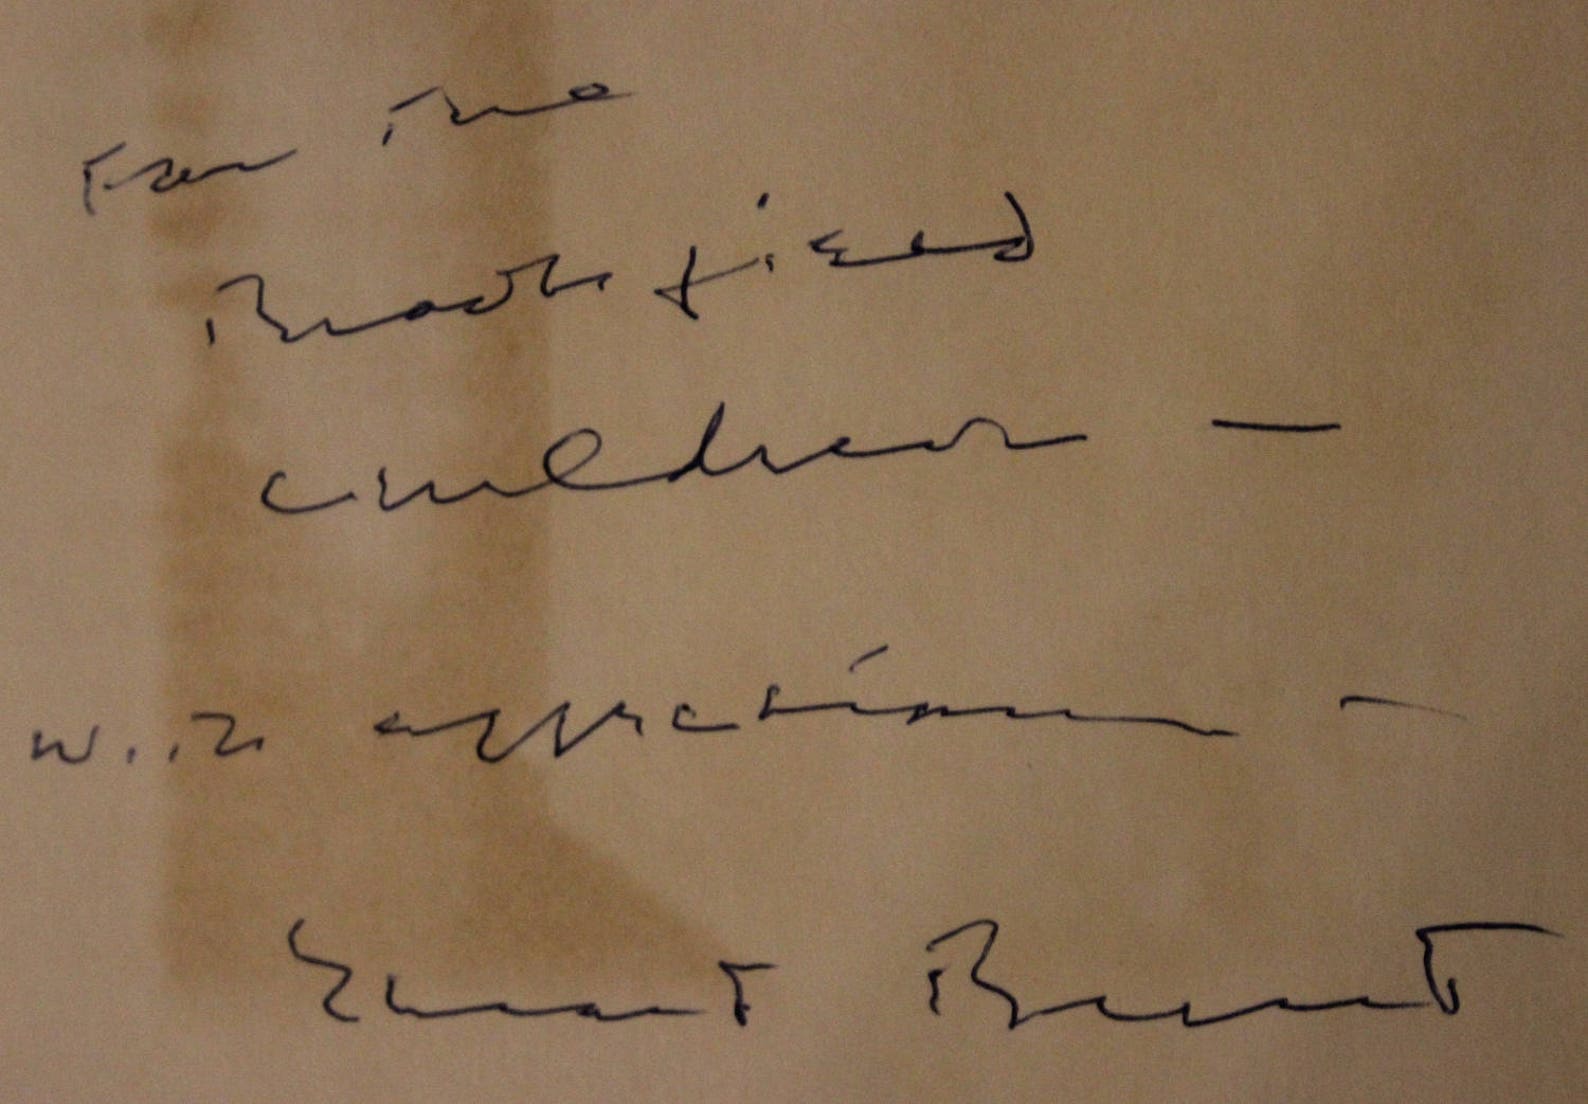 For the
Brookfield
children —
with affection —
Stewart Brent